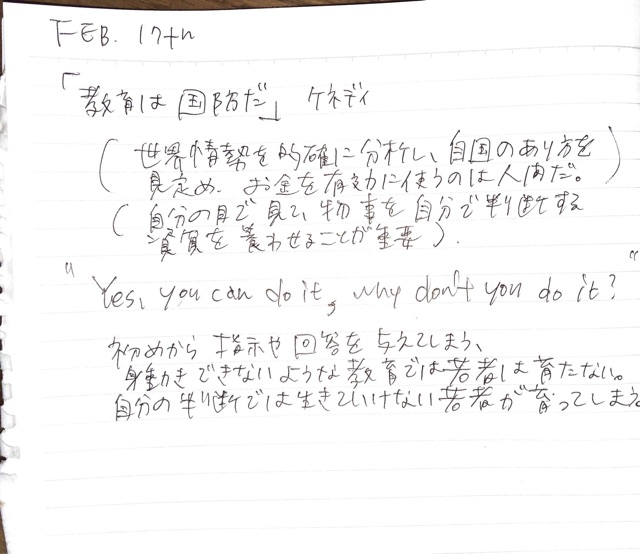 FEB. 17th
「教育は国防だ」 ケネディ
(世界情勢を的確に分析し、自国のあり方を
見定め、お金を有効に使うのは人間だ。)
(自分の目で見て、物事を自分で判断する
資質を養わせることが重要)。
"Yes, you can do it, why don't you do it?"
初めから指示や回答を与えてしまう、
身動きできないような教育では若者は育たない。
自分の判断では生きていけない若者が育ってしまう